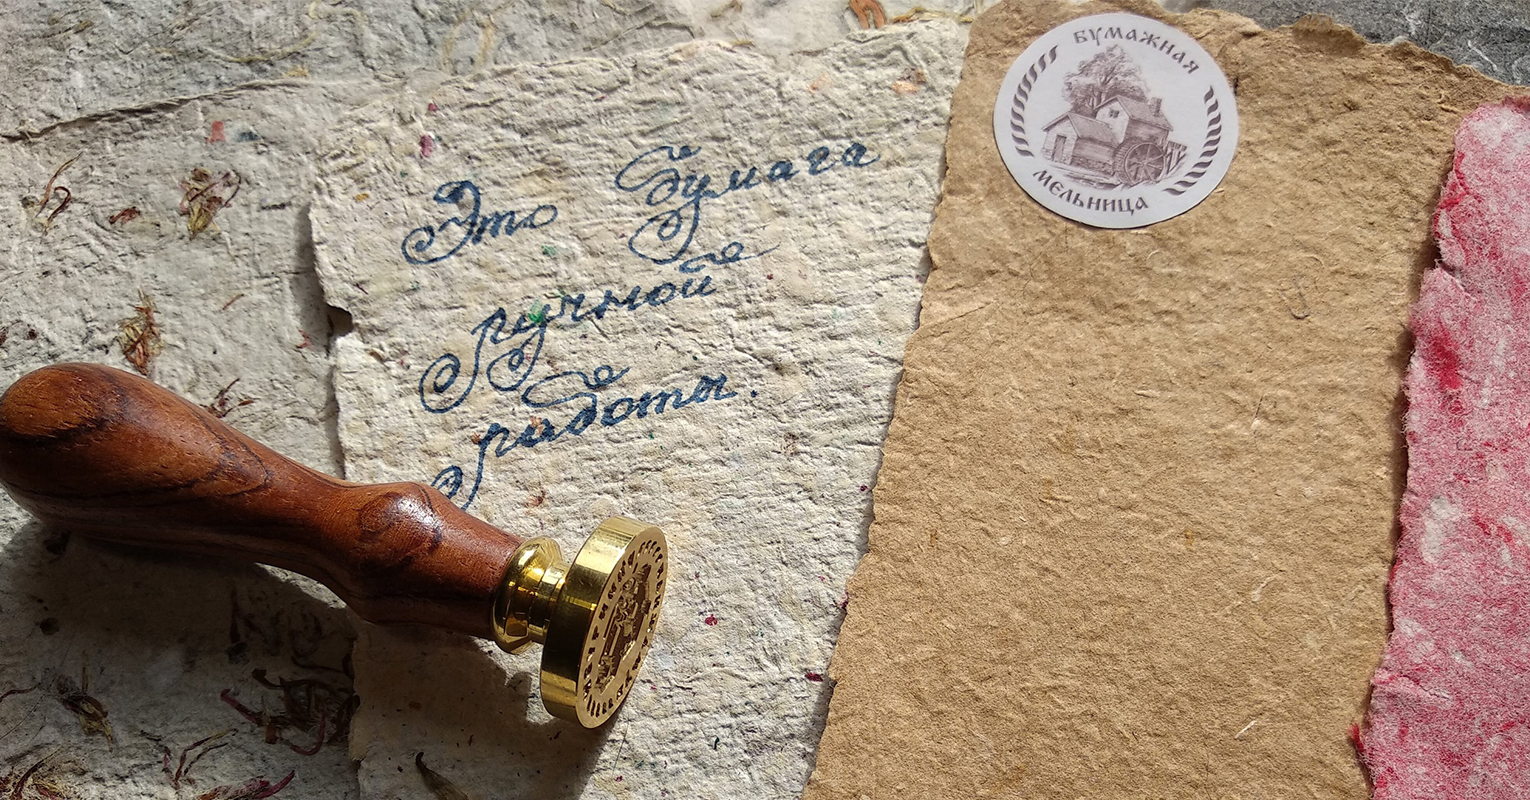 Это бумага
ручной
работы.
БУМАЖНАЯ
МЕЛЬНИЦА